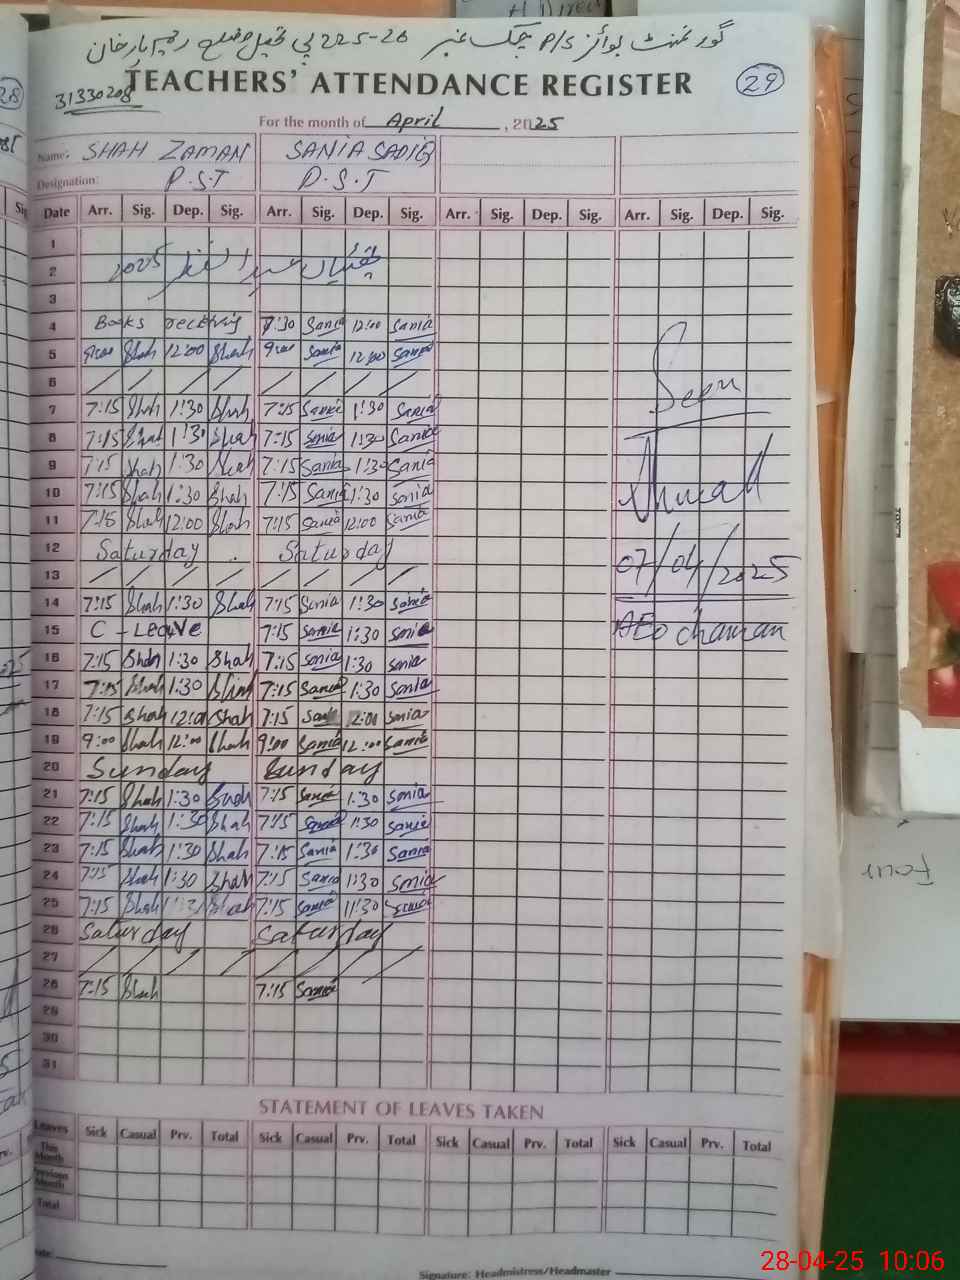 گورنمنٹ بوائز P/S چک نمبر 225-20 پی تحصیل و ضلع رحیم یار خان
TEACHERS' ATTENDANCE REGISTER 29
31330208
For the month of April, 2025
Name: SHAH ZAMAN SANIA SADIQ
Designation: P.S.T P.S.T
Date Arr. Sig. Dep. Sig. Arr. Sig. Dep. Sig. Arr. Sig. Dep. Sig. Arr. Sig. Dep. Sig.
1
2 2025 عید الفطر
3
4 Books receiving 7:30 Sania 12:00 Sania
5 9:00 Shah 12:00 Shah 9:00 Sania 12:00 Sania
6 / / / / / / / /
Seen
7 7:15 Shah 1:30 Shah 7:15 Sania 1:30 Sania
8 7:15 Shah 1:30 Shah 7:15 Sania 1:30 Sania
9 7:15 Shah 1:30 Shah 7:15 Sania 1:30 Sania
10 7:15 Shah 1:30 Shah 7:15 Sania 1:30 Sania
11 7:15 Shah 12:00 Shah 7:15 Sania 12:00 Sania
12 Saturday Saturday
13 / / / / / / / /
07/04/2025
14 7:15 Shah 1:30 Shah 7:15 Sania 1:30 Sania
15 C - Leave 7:15 Sania 1:30 Sania
AEO chaman
16 7:15 Shah 1:30 Shah 7:15 Sania 1:30 Sania
17 7:15 Shah 1:30 Shah 7:15 Sania 1:30 Sania
18 7:15 Shah 12:00 Shah 7:15 Sania 12:00 Sania
19 9:00 Shah 12:00 Shah 9:00 Sania 12:00 Sania
20 Sunday Sunday
21 7:15 Shah 1:30 Shah 7:15 Sania 1:30 Sania
22 7:15 Shah 1:30 Shah 7:15 Sania 1:30 Sania
23 7:15 Shah 1:30 Shah 7:15 Sania 1:30 Sania
24 7:15 Shah 1:30 Shah 7:15 Sania 1:30 Sania
25 7:15 Shah 1:30 Shah 7:15 Sania 11:30 Sania
26 Saturday Saturday
27 / / / / / / / /
28 7:15 Shah 7:15 Sania
29
30
31
STATEMENT OF LEAVES TAKEN
Leaves Sick Casual Prv. Total Sick Casual Prv. Total Sick Casual Prv. Total Sick Casual Prv. Total
This Month
Previous Month
Total
Date:
Signature: Headmistress/Headmaster
Four
28-04-25 10:06